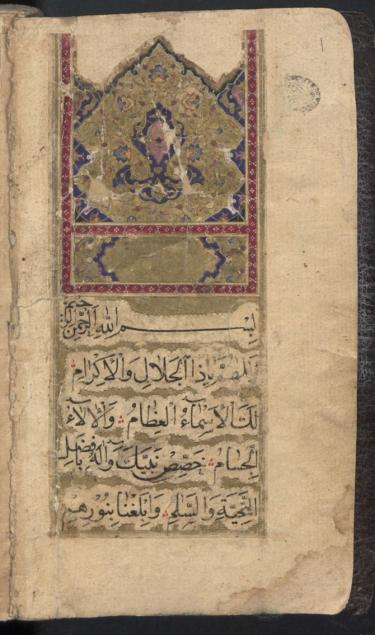 بِسْمِ اللهِ الرَّحْمٰنِ الرَّحِيم
اَللّٰهُمَّ يَاذَا الْجَلَالِ وَالْاِكْرَامِ
لَكَ الْاَسْمَاءُ الْعِظَامُ وَالْاٰلَاءُ
الْجِسَامُ خَصِّصْ نَبِيَّكَ وَآلَهُ بِاَفْضَلِ
التَّحِيَّةِ وَالسَّلٰمِ وَابْلُغْنَا بِنُورِهِمْ